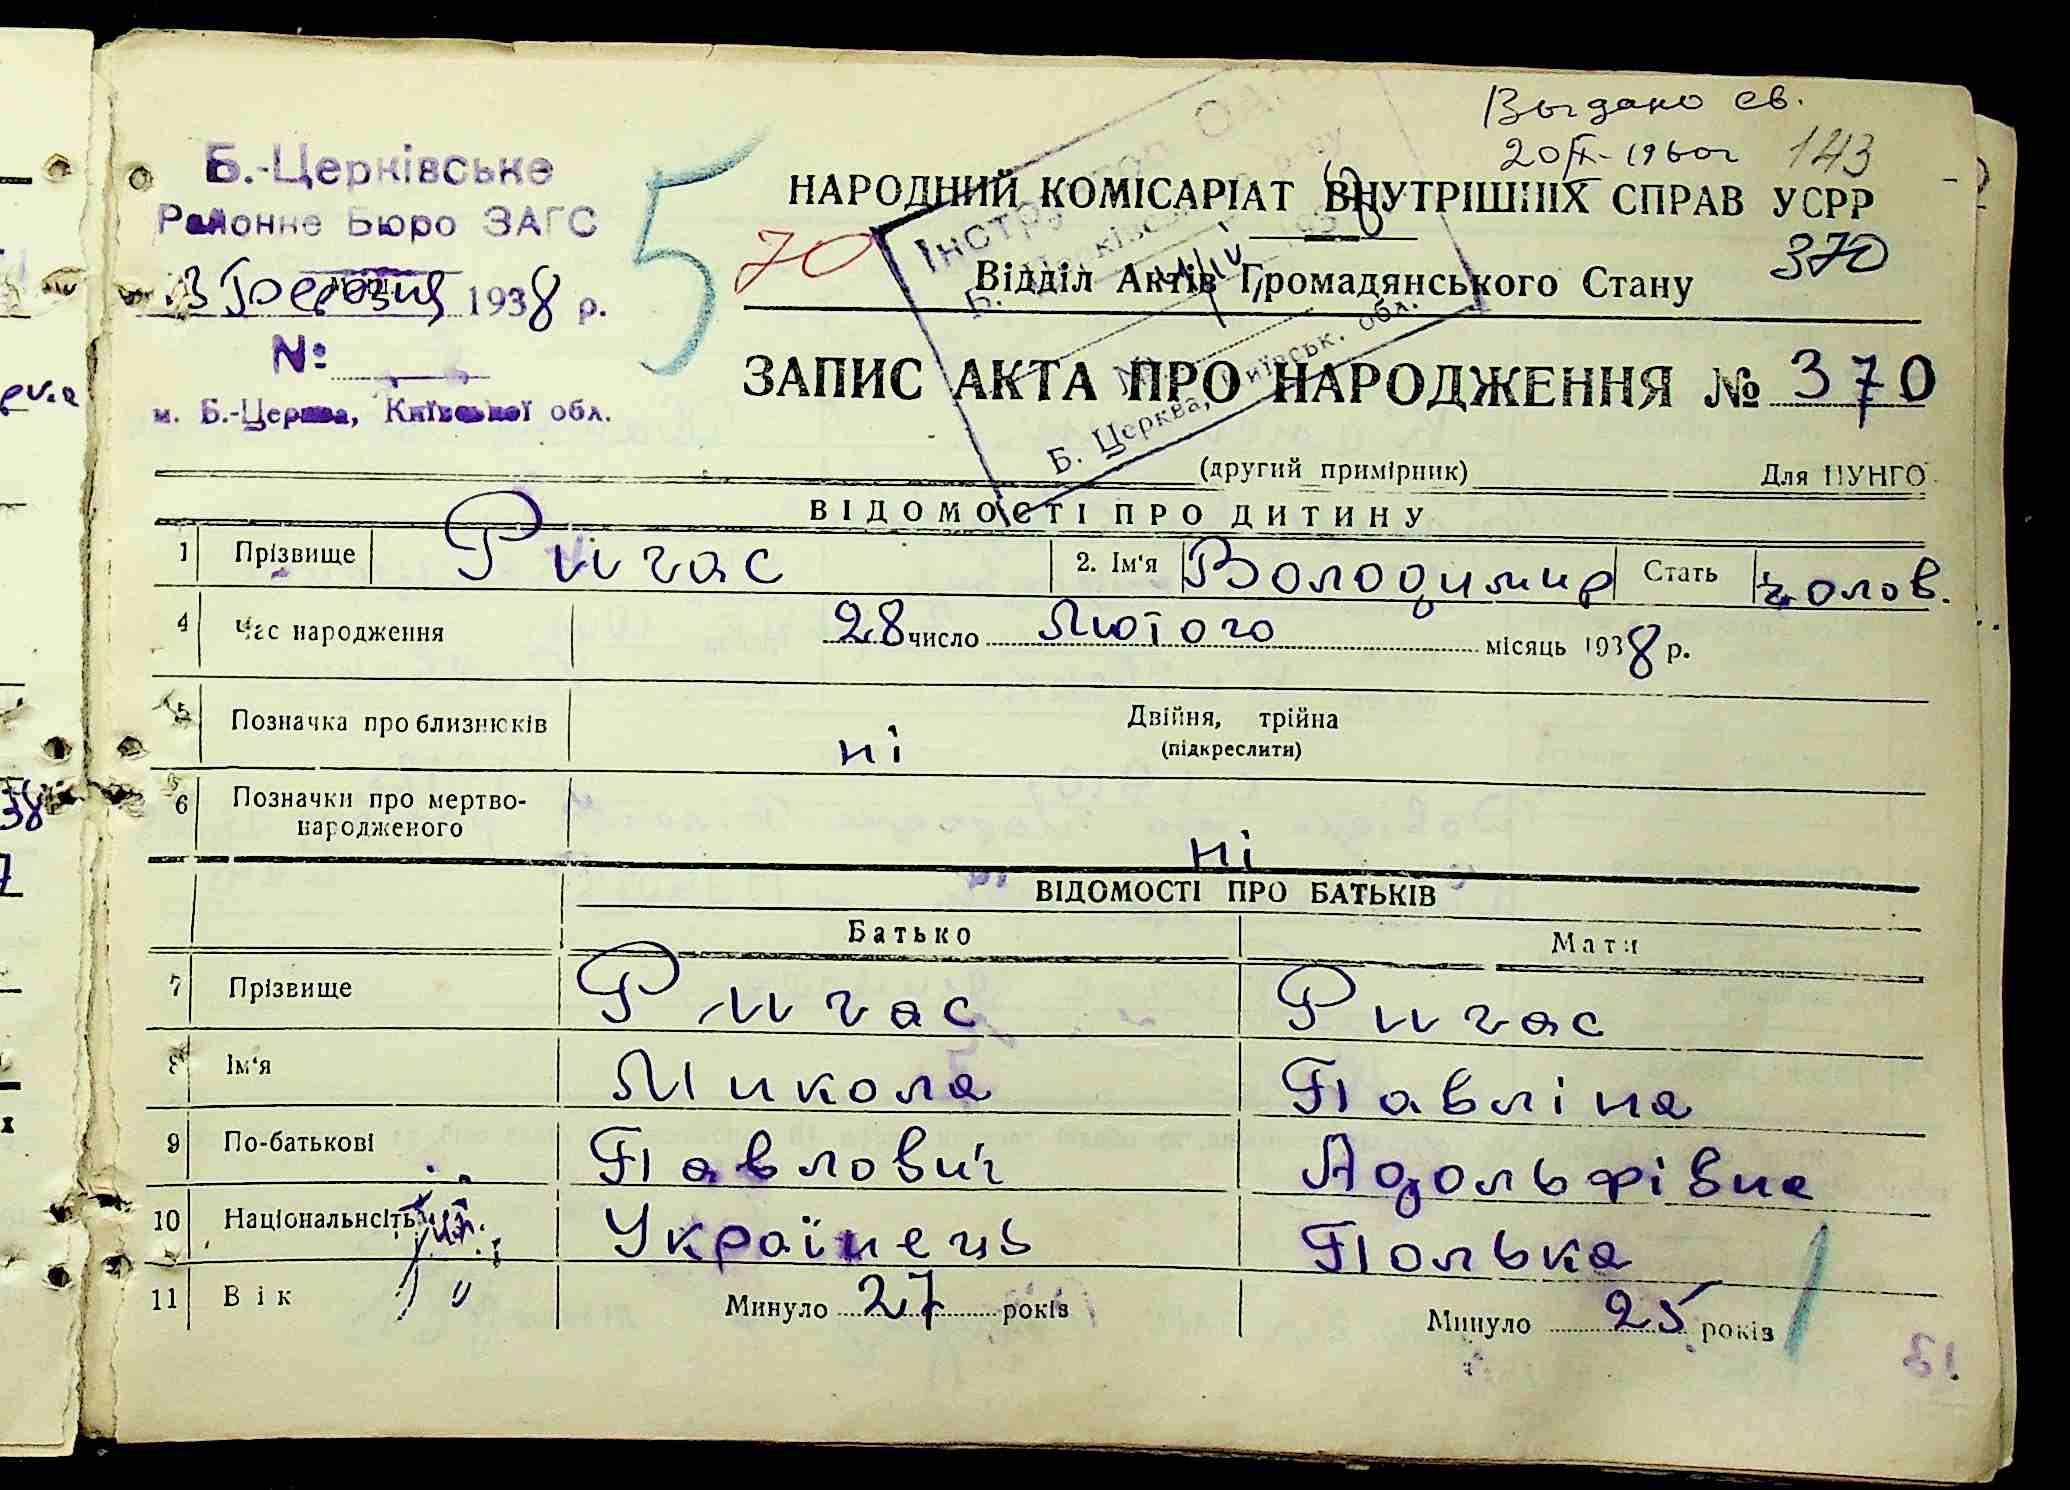 Выдано св.
20/IX-1960г 143
Б.-Церківське
Районне Бюро ЗАГС
1938 р.
№
м. Б.-Церква, Київської обл.
5
70
НАРОДНИЙ КОМІСАРІАТ ВНУТРІШНІХ СПРАВ УСРР
370
Відділ Актів Громадянського Стану
ЗАПИС АКТА ПРО НАРОДЖЕННЯ № 370
Б. Церква, Київськ. обл.
(другий примірник) Для ПУНГО
ВІДОМОСТІ ПРО ДИТИНУ
1 Прізвище Ригас 2. Ім'я Володимир Стать чолов.
4 Час народження 28 число Лютого місяць 1938 р.
5 Позначка про близнюків ні Двійня, трійна
(підкреслити)
6 Позначки про мертво-
народженого ні
ВІДОМОСТІ ПРО БАТЬКІВ
Батько Мати
7 Прізвище Ригас Ригас
8 Ім'я Микола Павліна
9 По-батькові Павлович Адольфівна
10 Національність Українець Полька
11 Вік Минуло 27 років Минуло 25 років